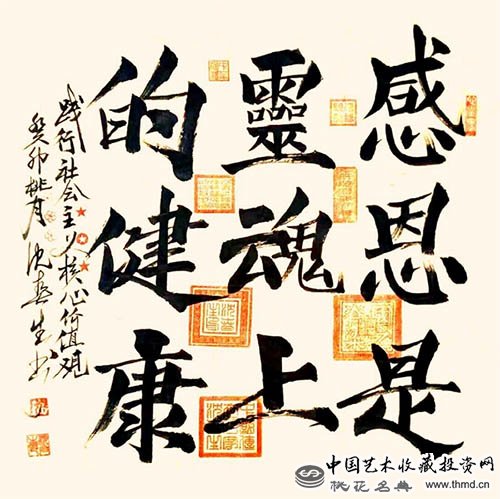 感恩是
靈魂上
的健康
践行社会主义核心价值观
癸卯桃月沈生书
中国艺术收藏投资网
桃花名典 www.thmd.cn